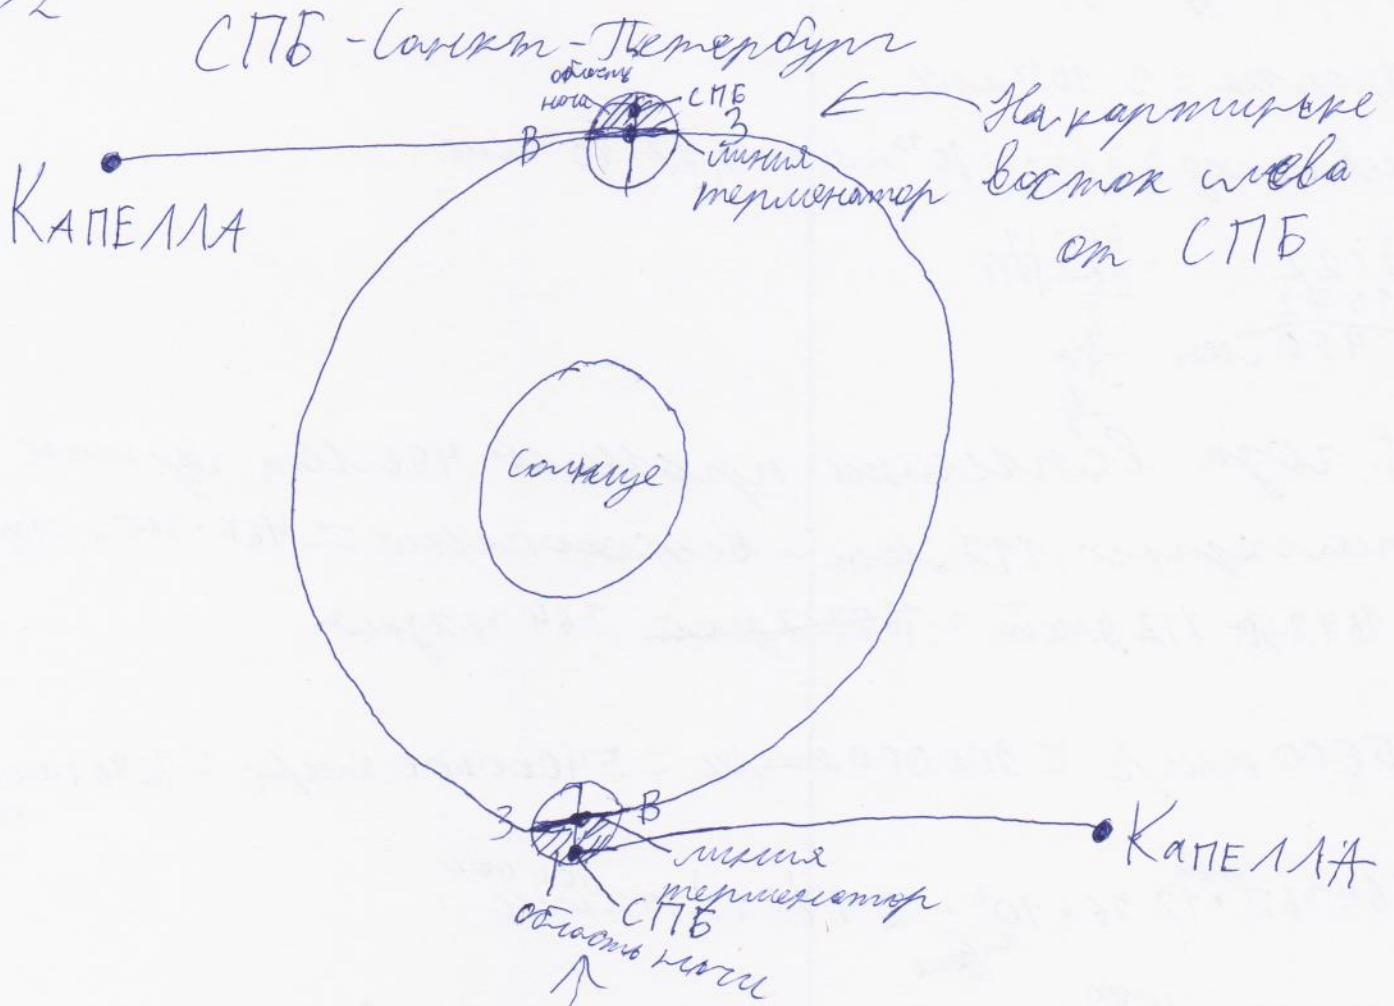 СПБ - Санкт - Петербург
область
ночи
СПБ
В
З
линия
терменатор
На картинке
восток слева
от СПБ
КАПЕЛЛА
Солнце
З
В
КАПЕЛЛА
линия
терменатор
СПБ
область ночи